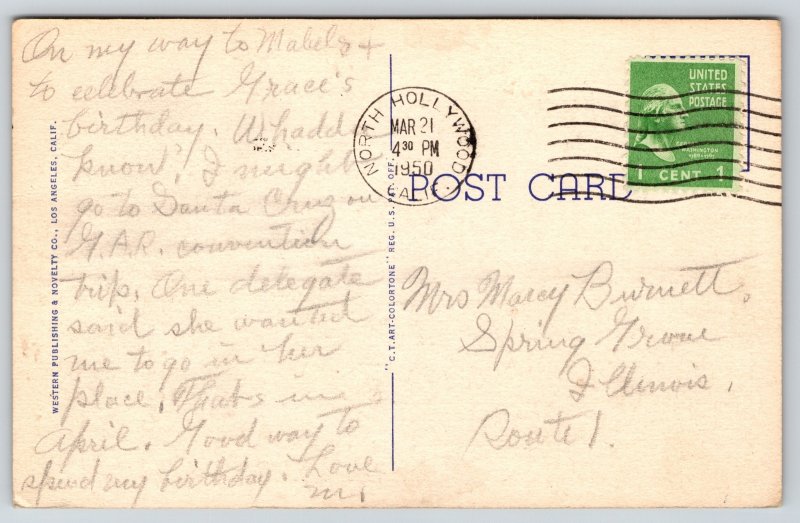 On my way to Mabel's +
to celebrate Grace's
birthday. Whadda
know, I might
go to Santa Cruz on
G.A.R. convention
trip. One delegate
said she wanted
me to go in her
place, Thats in
April. Good way to
spend my birthday. Love
M.
WESTERN PUBLISHING & NOVELTY CO., LOS ANGELES, CALIF.
"C.T. ART-COLORTONE" REG. U.S. PAT. OFF.
NORTH HOLLYWOOD
MAR 21
4 30 PM
1950
CALIF.
POST CARD
UNITED
STATES
POSTAGE
WASHINGTON
1 CENT 1
Mrs Marcy Burnett,
Spring Grove
Illinois,
Route 1.